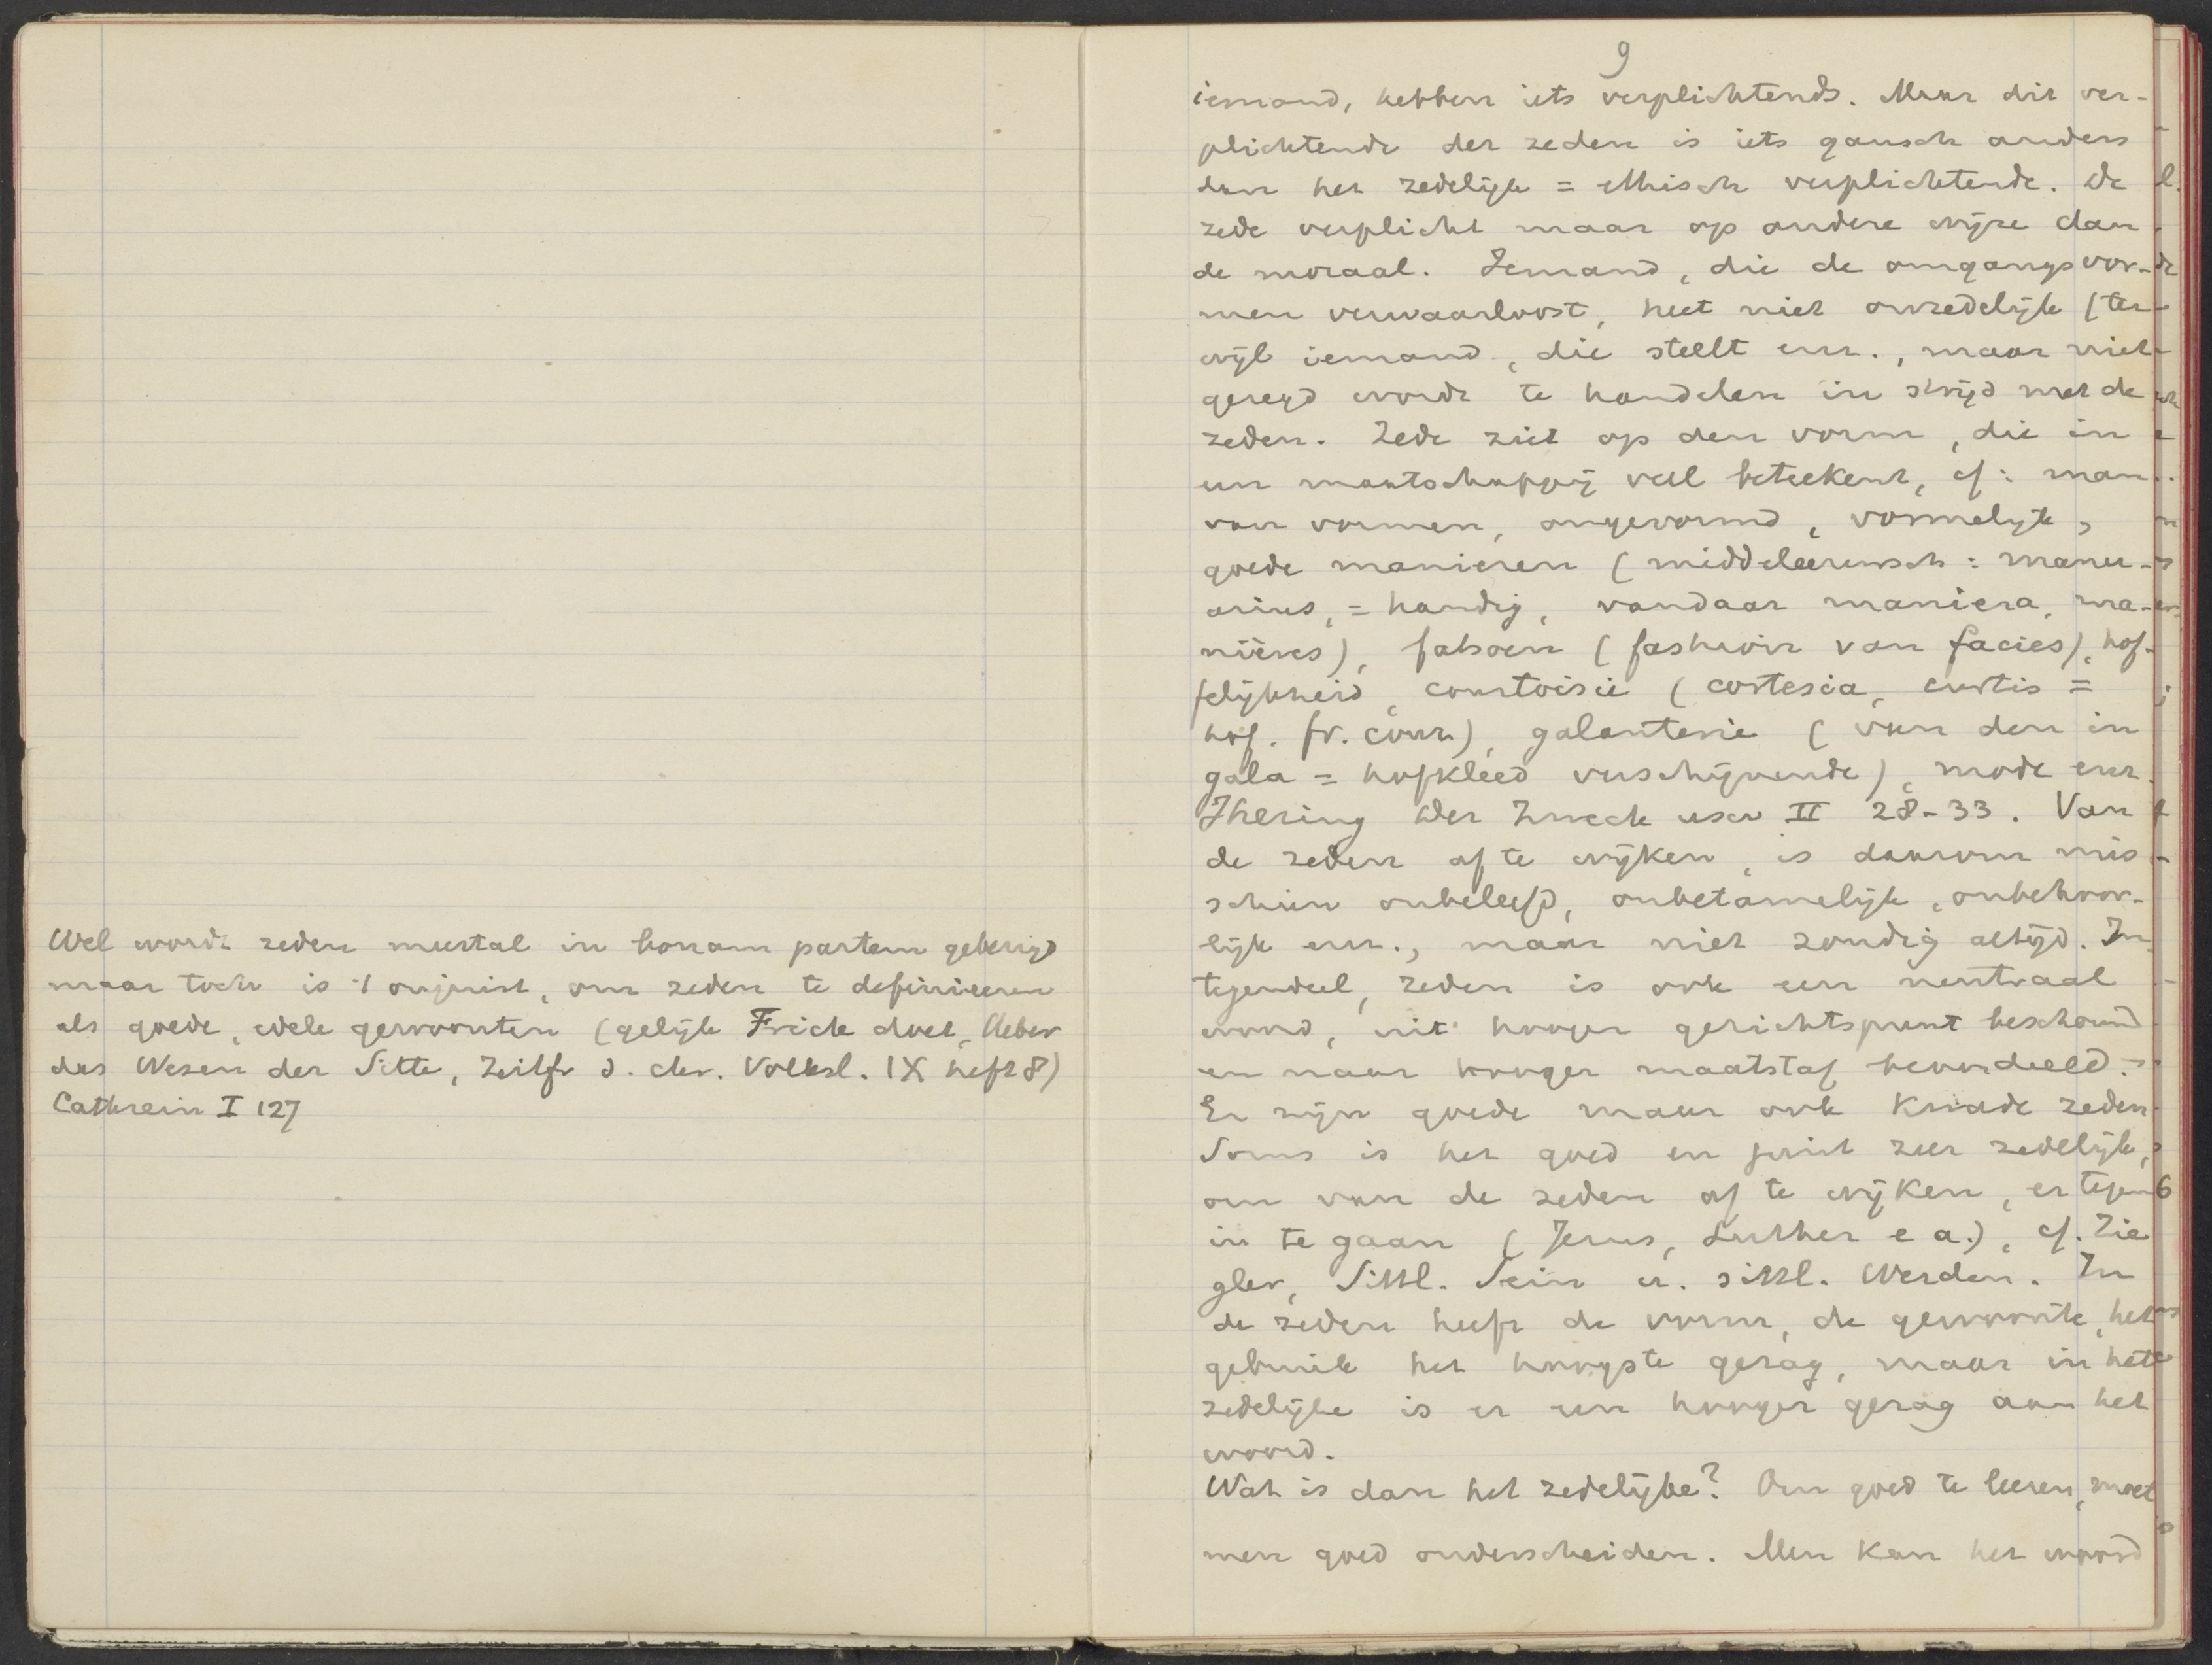 Wel wordt zeden meestal in bonam partem gebezigd
maar toch is 't onjuist, om zeden te definieeren
als goede, edele gewoonten (gelijk Frick doet, Ueber
das Wesen der Sitte, Zeitfr d. chr. Volksl. IX heft 8)
Cathrein I 127
9
iemand, hebben iets verplichtends. Maar dit ver-
plichtende der zeden is iets gansch anders
dan het zedelijk = ethisch verplichtende. De
zede verplicht maar op andere wijze dan
de moraal. Iemand, die de omgangsvor-
men verwaarloost, heet niet onzedelijk (ter-
wijl iemand, die steelt enz., maar niet
gezegd wordt te handelen in strijd met de
zeden. Zede ziet op den vorm, die in
een maatschappij veel beteekent, cf: man
van vormen, ongevormd, vormelijk,
goede manieren (middeleeuwsch: manu-
arius, = handig, vandaar maniera, ma-
nières), fatsoen (fashion van facies), hof-
felijkheid, courtoisie (cortesia, curtis =
hof. fr. cour), galanterie (van den in
gala = hofkleed verschijnende), mode enz.
Jhering Der Zweck usw II 28-33. Van
de zeden af te wijken, is daarom mis-
schien onbeleefd, onbetamelijk, onbehoor-
lijk enz., maar niet zondig altijd. In-
tegendeel, zeden is ook een neutraal
woord, uit hooger gezichtspunt beschouwd
en naar hooger maatstaf beoordeeld.
Er zijn goede maar ook kwade zeden.
Soms is het goed en juist zeer zedelijk,
om van de zeden af te wijken, er tegen
in te gaan (Jezus, Luther e a.), cf. Zie
gler, Sittl. Sein u. sittl. Werden. In
de zeden heeft de vorm, de gewoonte, het
gebruik het hoogste gezag, maar in het
zedelijke is er een hooger gezag aan het
woord.
Wat is dan het zedelijke? Om goed te leeren, moet
men goed onderscheiden. Men kan het woord